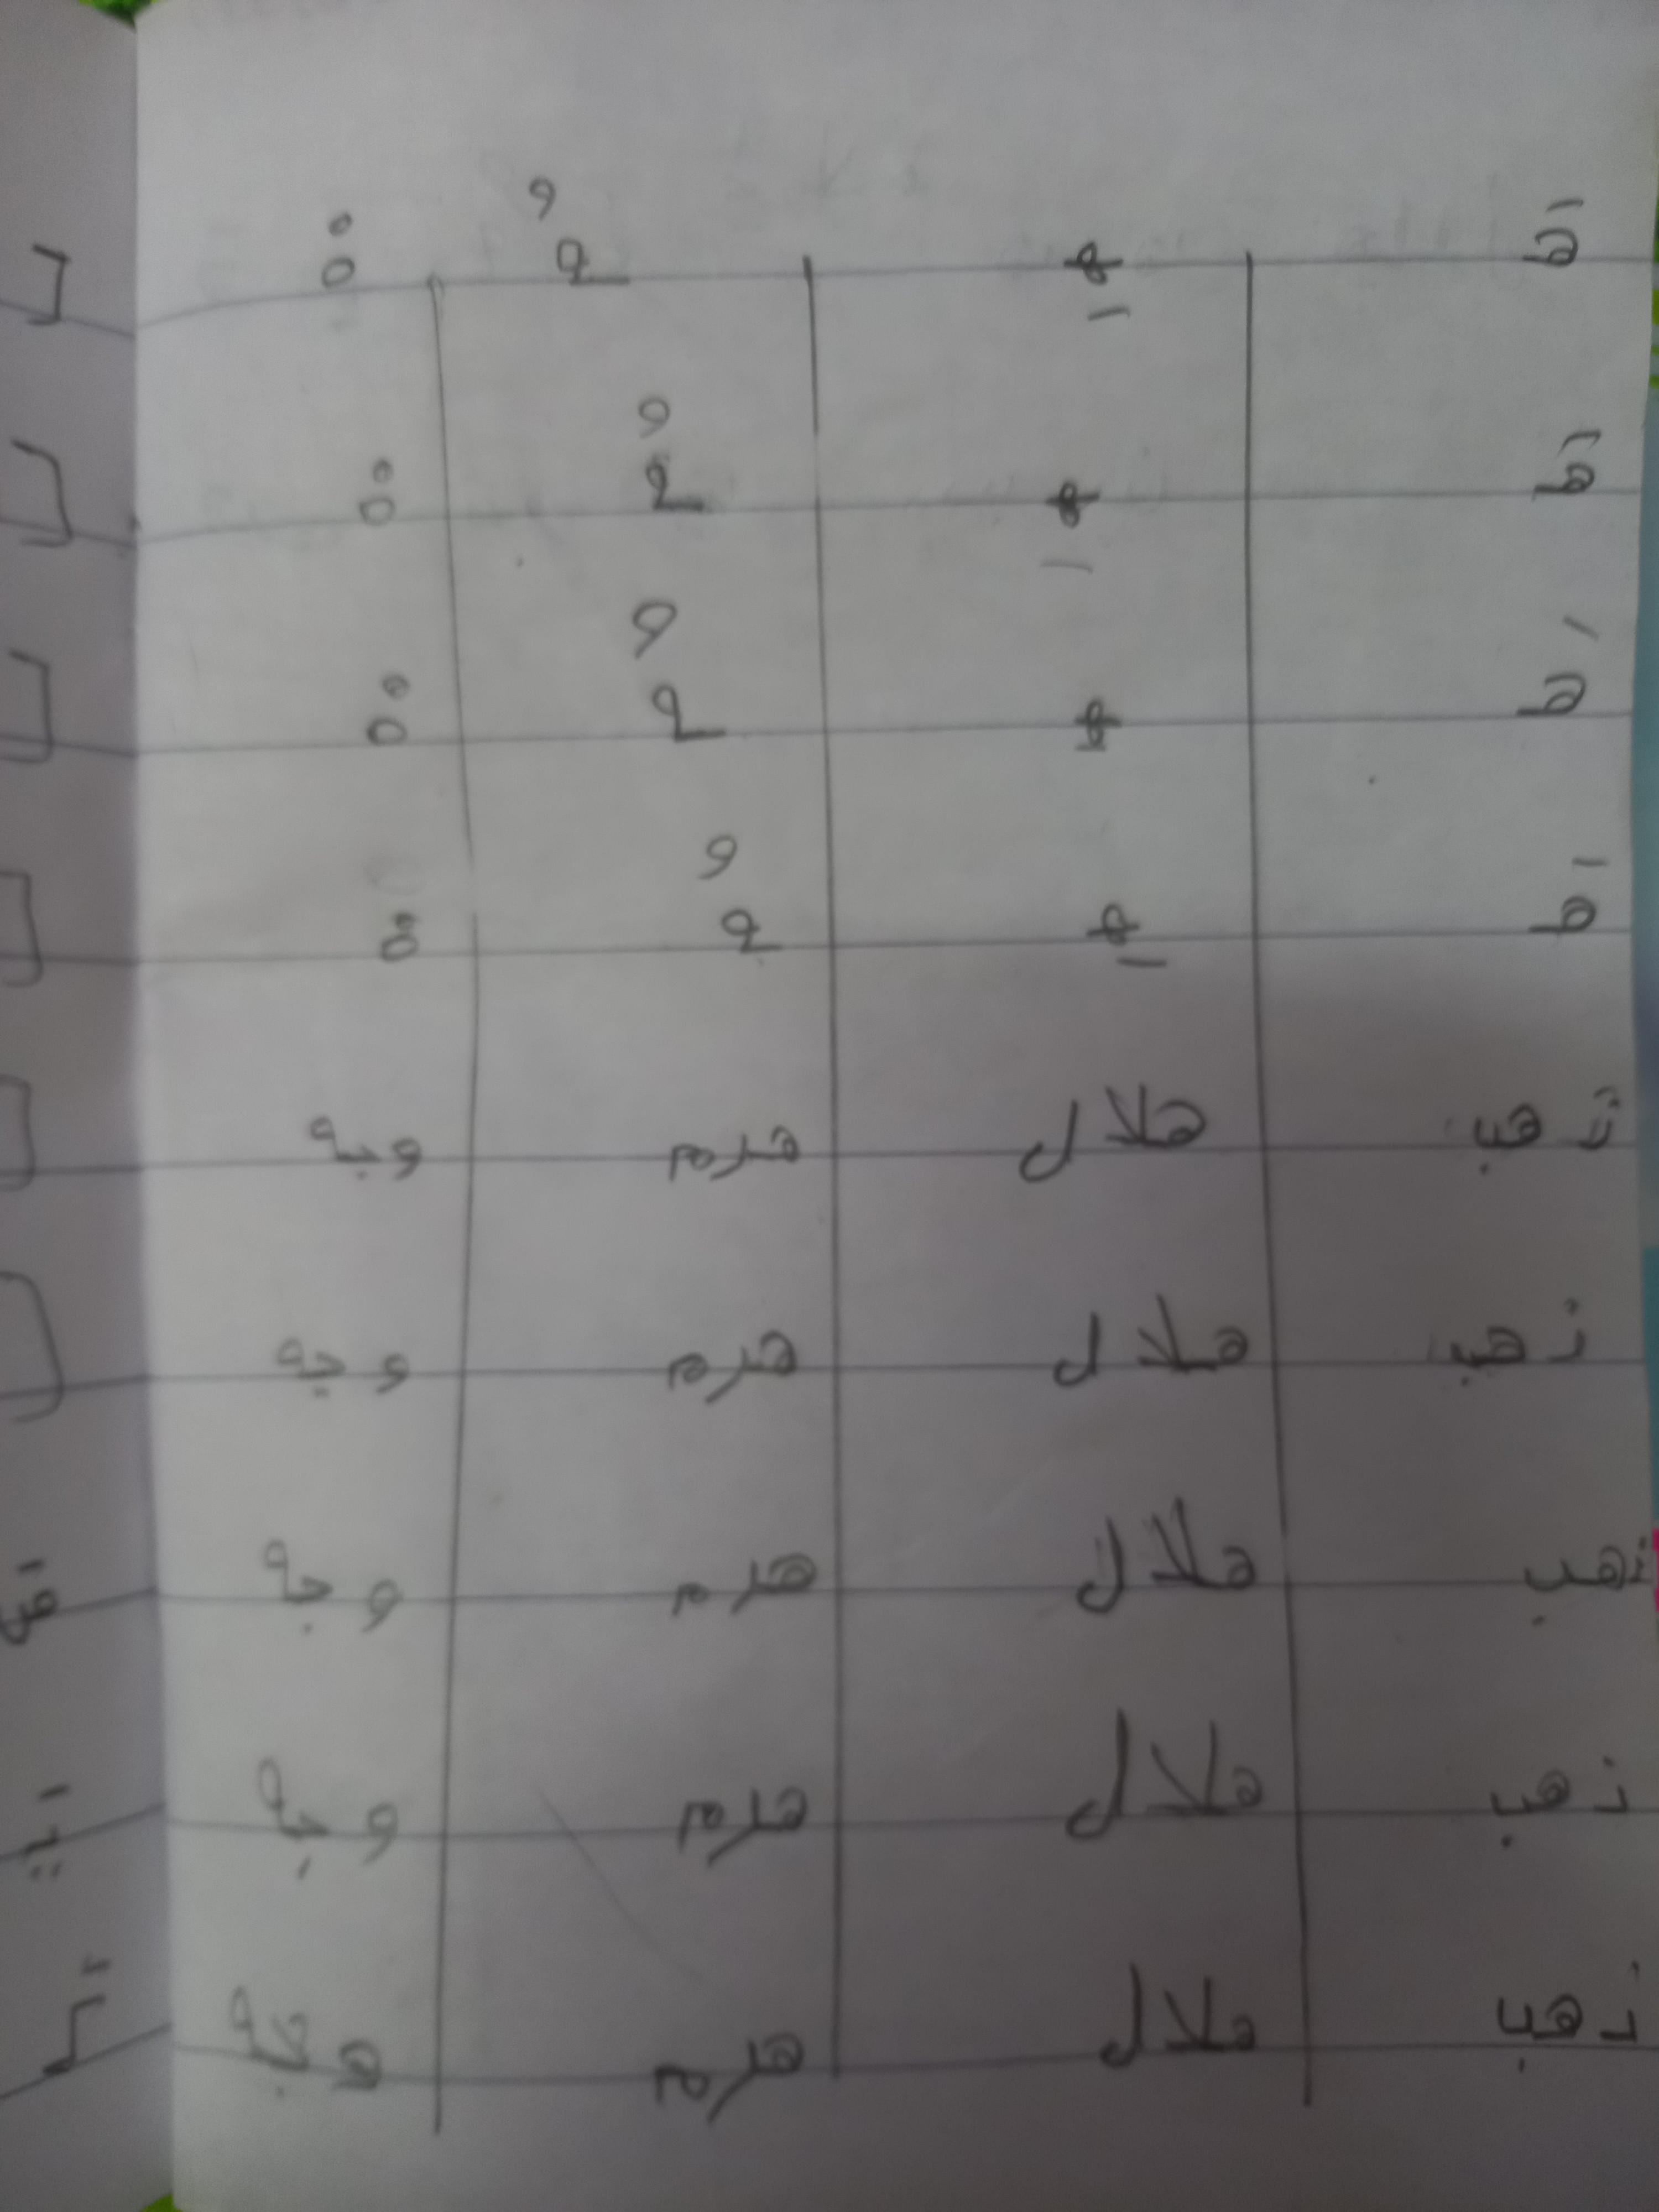 هَ ـهِ ـهُ هْ
هَ ـهِ ـهُ هْ
هَ ـهِ ـهُ هْ
هَ ـهِ ـهُ هْ
ذهب هلال هرم وجه
ذهب هلال هرم وجه
ذهب هلال هرم وجه
ذهب هلال هرم وجه
ذهب هلال هرم وجه